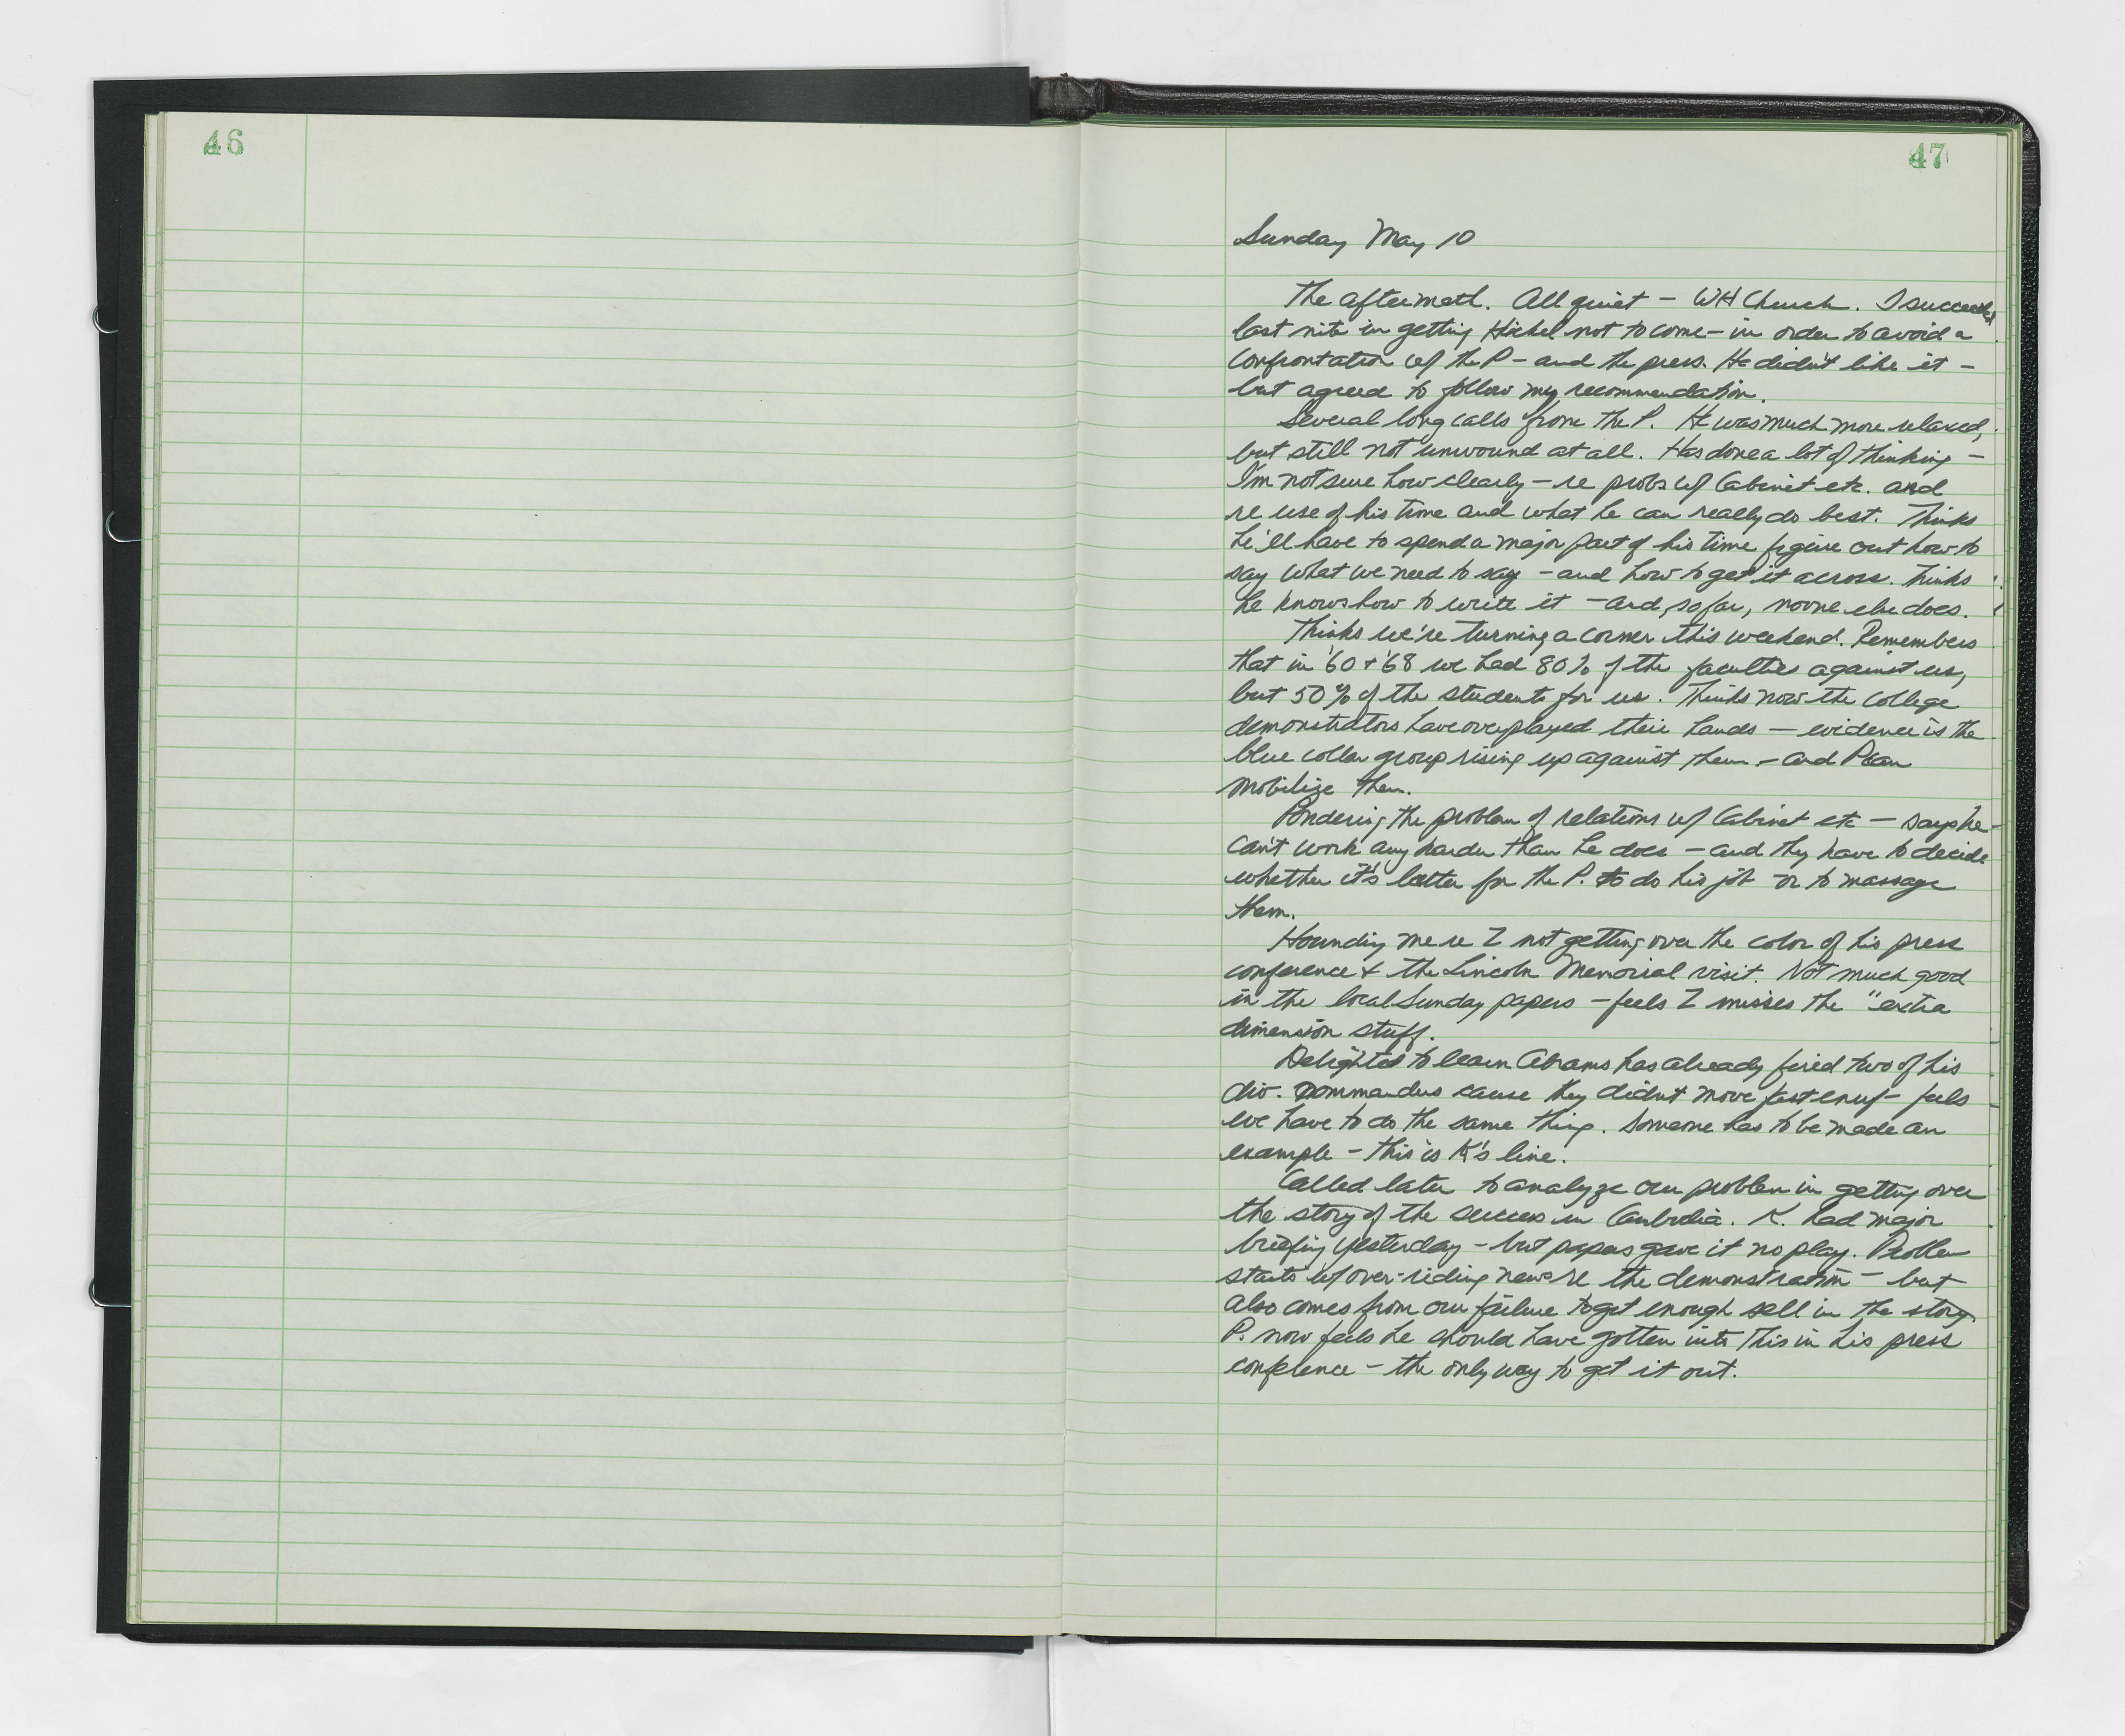 46
47
Sunday May 10
The aftermath. All quiet – WH Church. I succeeded
last nite in getting Hickel not to come – in order to avoid a
confrontation w/ the P – and the press. He didn't like it –
but agreed to follow my recommendation.
Several long calls from the P. He was much more relaxed,
but still not unwound at all. Has done a lot of thinking –
I'm not sure how clearly – re probs w/ Cabinet etc. and
re use of his time and what he can really do best. Thinks
he'll have to spend a major part of his time figure out how to
say what we need to say – and how to get it across. Thinks
he knows how to write it – and, so far, no one else does.
Thinks we're turning a corner this weekend. Remembers
that in '60 + '68 we had 80% of the faculties against us,
but 50% of the students for us. Thinks now the college
demonstrators have overplayed their hands – evidence is the
blue collar group rising up against them – and P can
mobilize them.
Pondering the problem of relations w/ Cabinet etc – says he
can't work any harder than he does – and they have to decide
whether it's better for the P. to do his job or to massage
them.
Hounding me re Z not getting over the color of his press
conference + the Lincoln Memorial visit. Not much good
in the local Sunday papers – feels Z misses the "extra
dimension stuff.
Delighted to learn Abrams has already fired two of his
div. commanders cause they didn't move fast enuf – feels
we have to do the same thing. Someone has to be made an
example – this is K's line.
Called later to analyze our problem in getting over
the story of the success in Cambodia. K. had major
briefing yesterday – but papers gave it no play. Problem
starts w/ over-riding news re the demonstration – but
also comes from our failure to get enough sell in the story.
P. now feels he should have gotten into this in his press
conference – the only way to get it out.